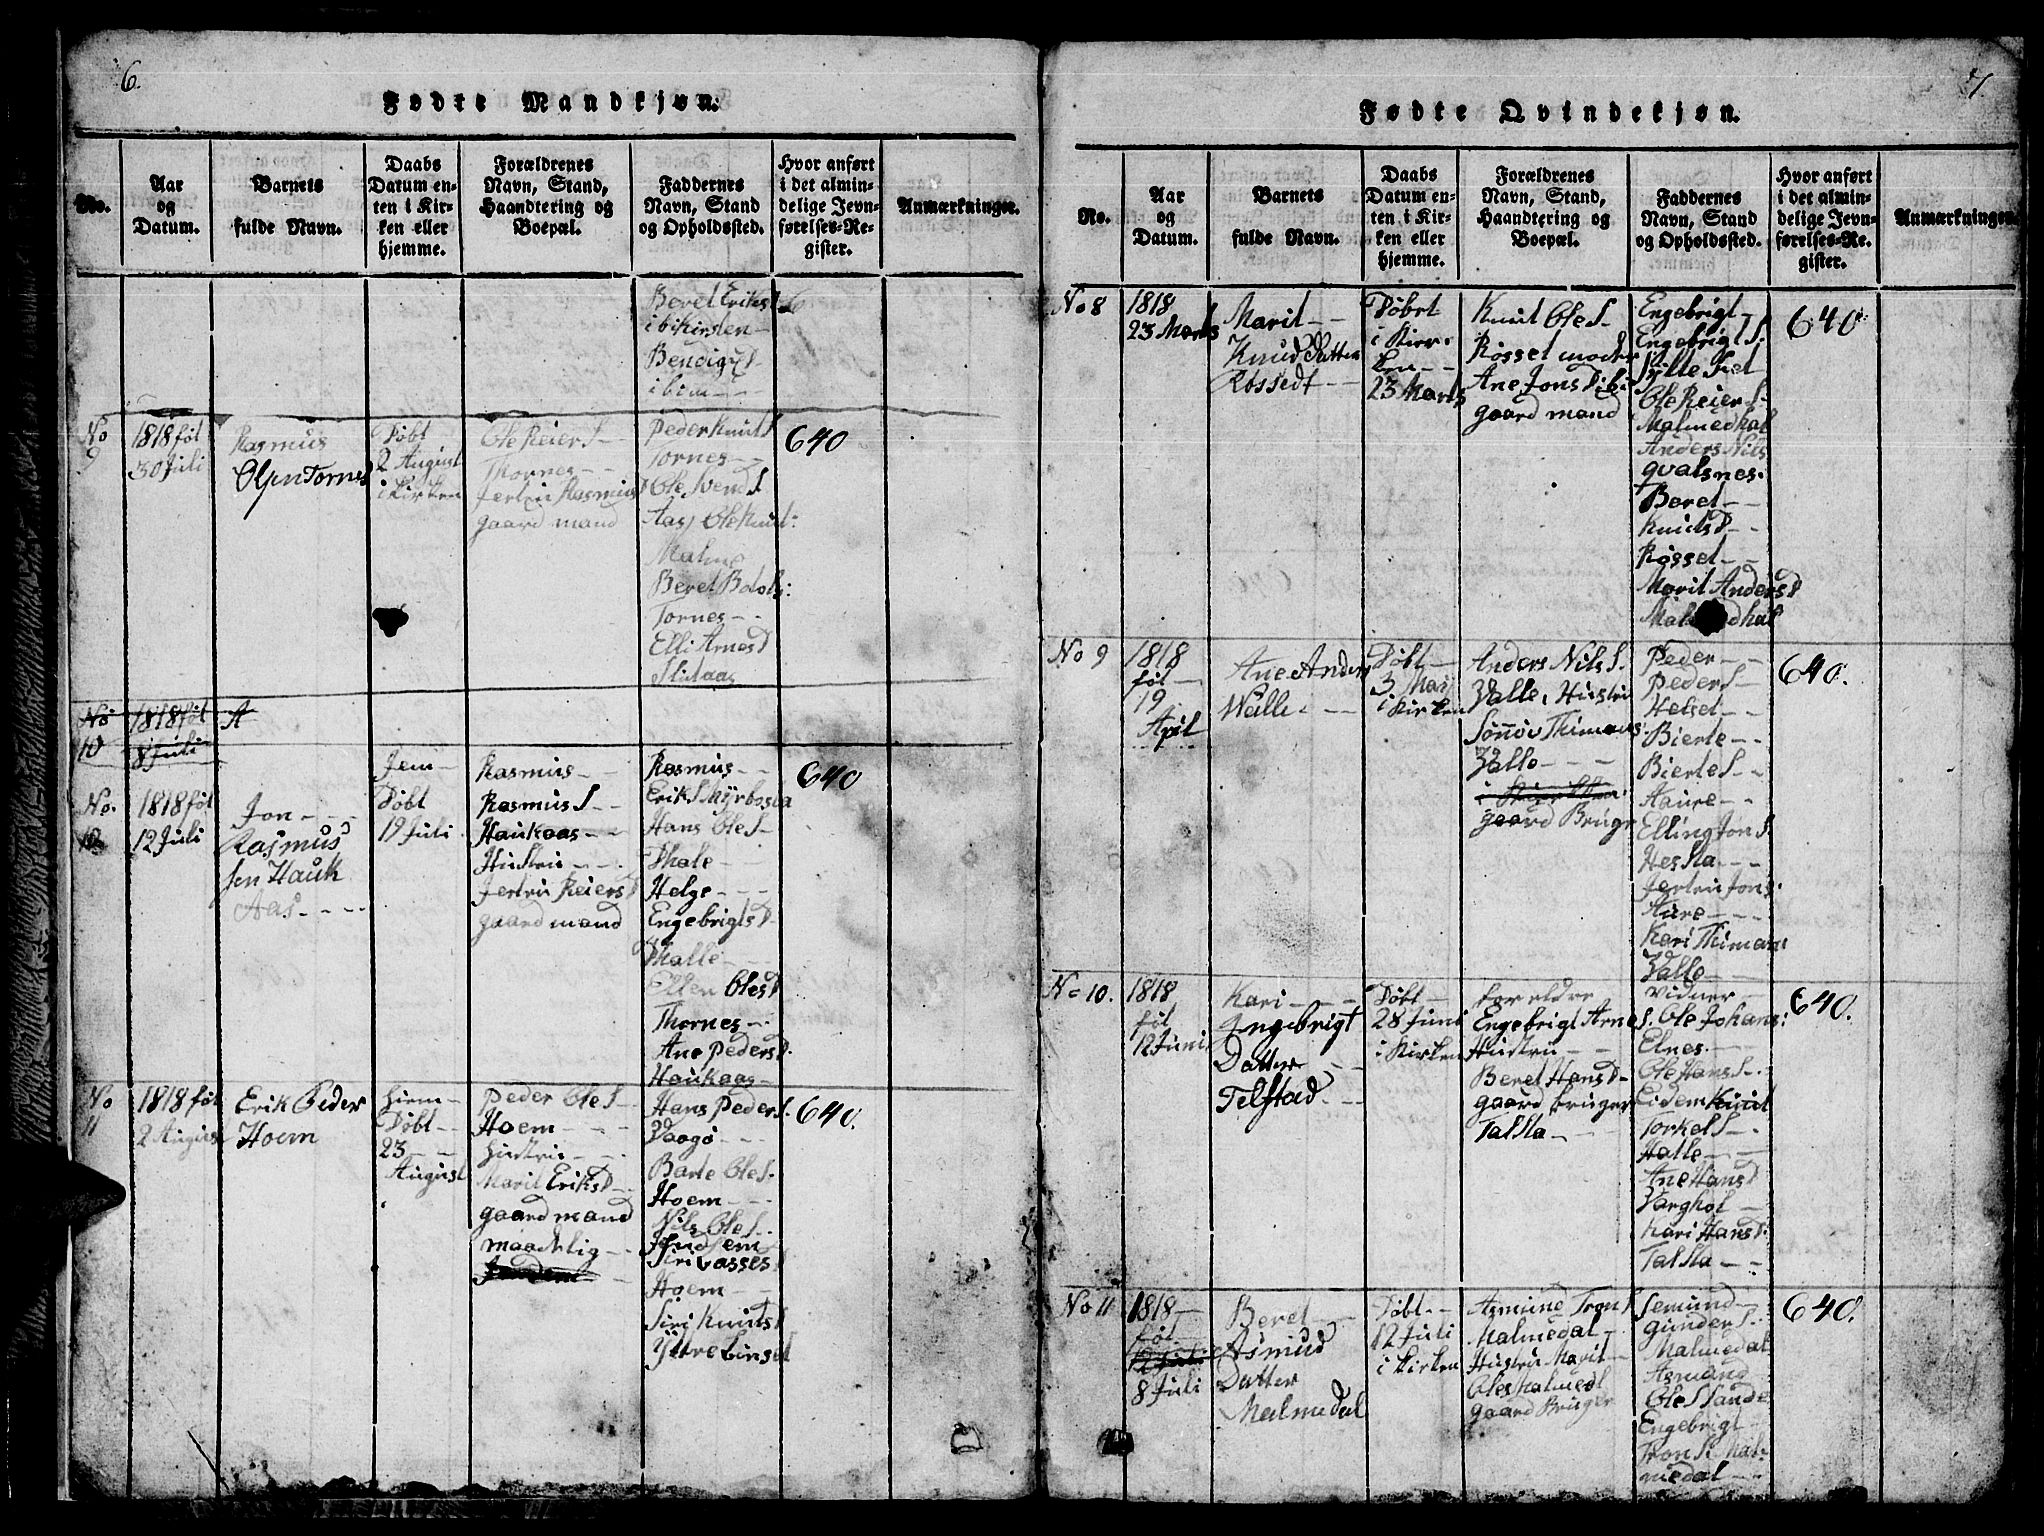 6.
Fødte Mandkjøn.
No.
Aar
og
Datum.
Barnets
fulde Navn.
Daabs
Datum en-
ten i Kir-
ken eller
hjemme.
Forældrenes
Navn, Stand,
Haandtering og
Boepæl.
Faddernes
Navn, Stand
og Opholdssted.
Hvor anført
i det almin-
delige Jevn-
førelses-Re-
gister.
Anmærkninger.
Beret Eriks
ibi kirsten
Bendigtd
ibim
No
9
1818 føt
30 Juli
Rasmus
Olsen Tornes
Døbt
2 August
i Kirken
Ole Reier S
Thornes
Jertru Rasmus
gaard mand
Peder Knut S
Tornes
Ole Svend S
Aas Ole Knut:
Malmø
Beret Botolfs:
Tornes
Elli Arnesd
Slidaas
No
10
1818 føt
8 Juli
A
No.
10
1818 føt
12 Juli
Jon
Rasmus
sen Hauk
Aas
Jem
Døbt
19 Juli
Rasmus
Rasmus S
Haukaas
Hustru
Jertru Reiers
gaard mand
Rasmus
Erik S Myrbosta
Hans Ole S
Thale
Helge
Engebrigts
Thalle
Ellen Olesd
Thornes
Ane Peders
Haukaas
640
640
No
11
1818 føt
2 August
Erik Peder
Hoem
hiem
Døbt
23
August
Peder Ole S
Hoem
hustru
Marit Eriksd
gaard mand
maadelig
Hans Peder S.
Vaagø
Barte Ole S.
Hoem
Nils Ole S.
Siri Vasses
Hoem
Siri Knuts
Yttre Linset
640.
7.
Fødte Qvindekjøn.
No.
Aar
og
Datum.
Barnets
fulde Navn.
Daabs
Datum en-
ten i Kir-
ken eller
hjemme.
Forældrenes
Navn, Stand,
Haandtering og
Boepæl.
Faddernes
Navn, Stand
og Opholdssted.
Hvor anført
i det almin-
delige Jevn-
førelses-Re-
gister.
Anmærkninger.
No 8
1818
23 Marts
Marit
Knud Datter
Røssedt
Døbt
i Kir-
ken
23 Marts
Knut Ole S
Røsset moder
Ane Jons D ibi
gaard mand
Engebrigt
Engebrigt S.
Ole Reier S
Malmedhal
Anders Nils
qvalsnes.
Beret
Knutsd
Røsset
Marit Andersd
640
No 9
1818
føt
19
April
Ane Anders
Walle
Døbt
3 Mai
i Kirken
Anders Nils S.
Valle, Hustru
Sønnøv Thimans
Valle
gaard Bruger
Peder
Peder S
Helset
Bierte
Bierte S
Aaure
Elling Jon S.
Hestta
Jertru Jons.
Aure
Kari Thimans
Valle
640.
No 10.
1818
føt
12 Juni
Kari
Ingebrigt
Datter
Telstad
Døbt
28 Juni
i Kirken
foreldre
Engebrigt Arne S.
Hustru
Beret Hans D
gaard bruger
Talsta
vidner
Ole Johans:
Elnes
Ole Hans S.
Eidem Knut
Torkel S
Halle
Ane Hansd
Varghol
Kari Hans
Talsta
640.
No 11
1818
føt
12 Juli
8 Juli
Beret
Asmud
Datter
Malmedal
Døbt
12 Juli
i Kirken
Asmund Tron S
Malmedal
Hustru Marit
Oles Malmedl
gaard Bruger
Semund
gunder S.
Malmedal
Asmand
Ole S Sande
Engebrigt
Tron S. Mal-
medal
640.